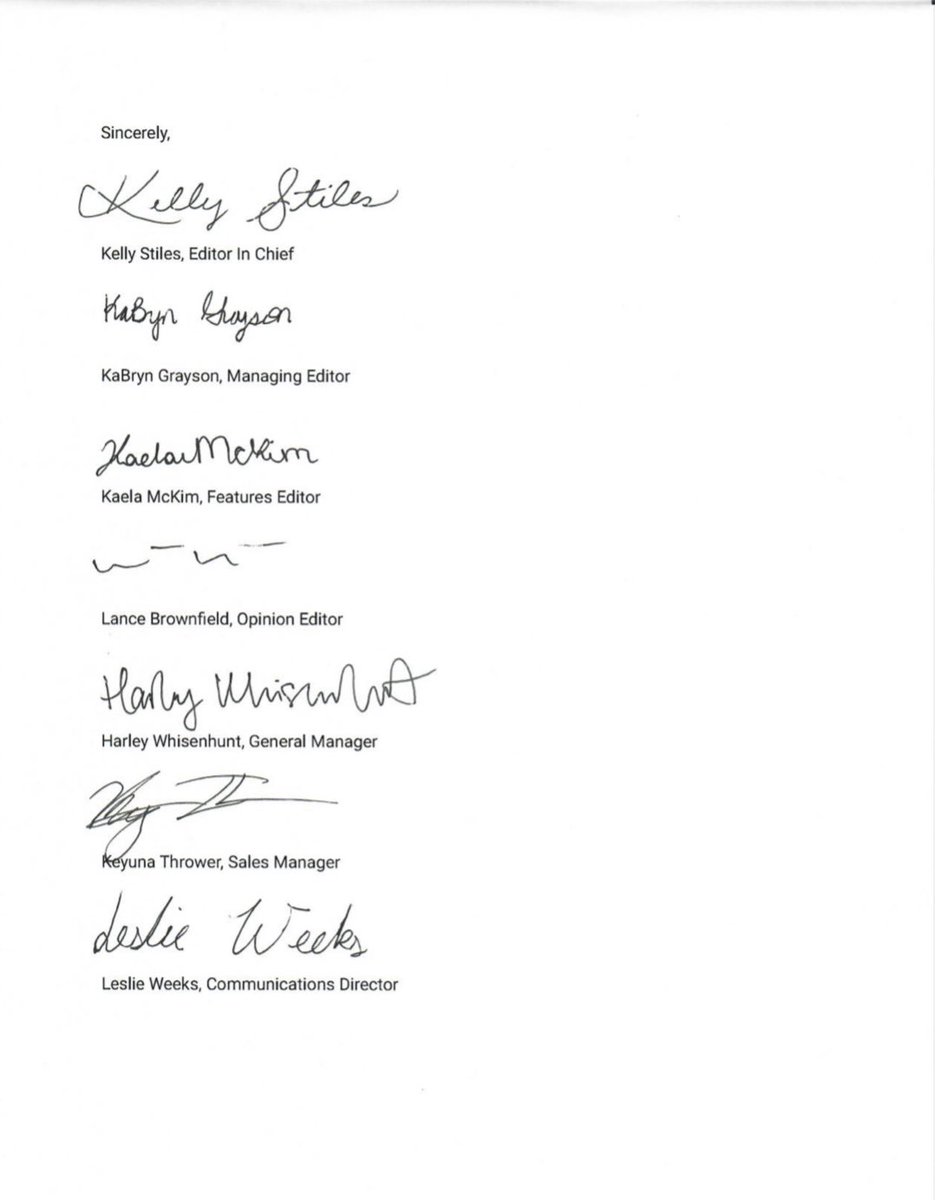 Sincerely,
Kelly Stiles
Kelly Stiles, Editor In Chief
KaBryn Grayson
KaBryn Grayson, Managing Editor
Kaela McKim
Kaela McKim, Features Editor
Lance Brownfield, Opinion Editor
Harley Whisenhunt
Harley Whisenhunt, General Manager
Keyuna Thrower, Sales Manager
Leslie Weeks
Leslie Weeks, Communications Director